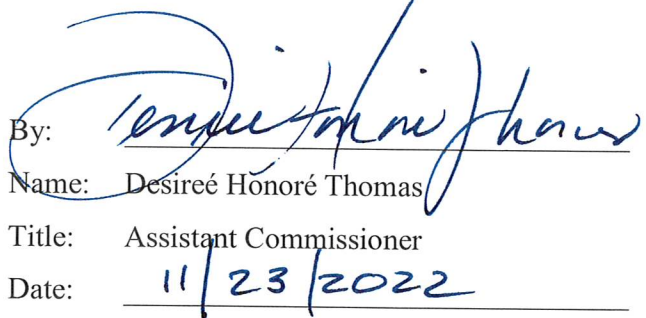 By: Desireé Honoré Thomas
Name: Desireé Honoré Thomas
Title: Assistant Commissioner
Date: 11/23/2022